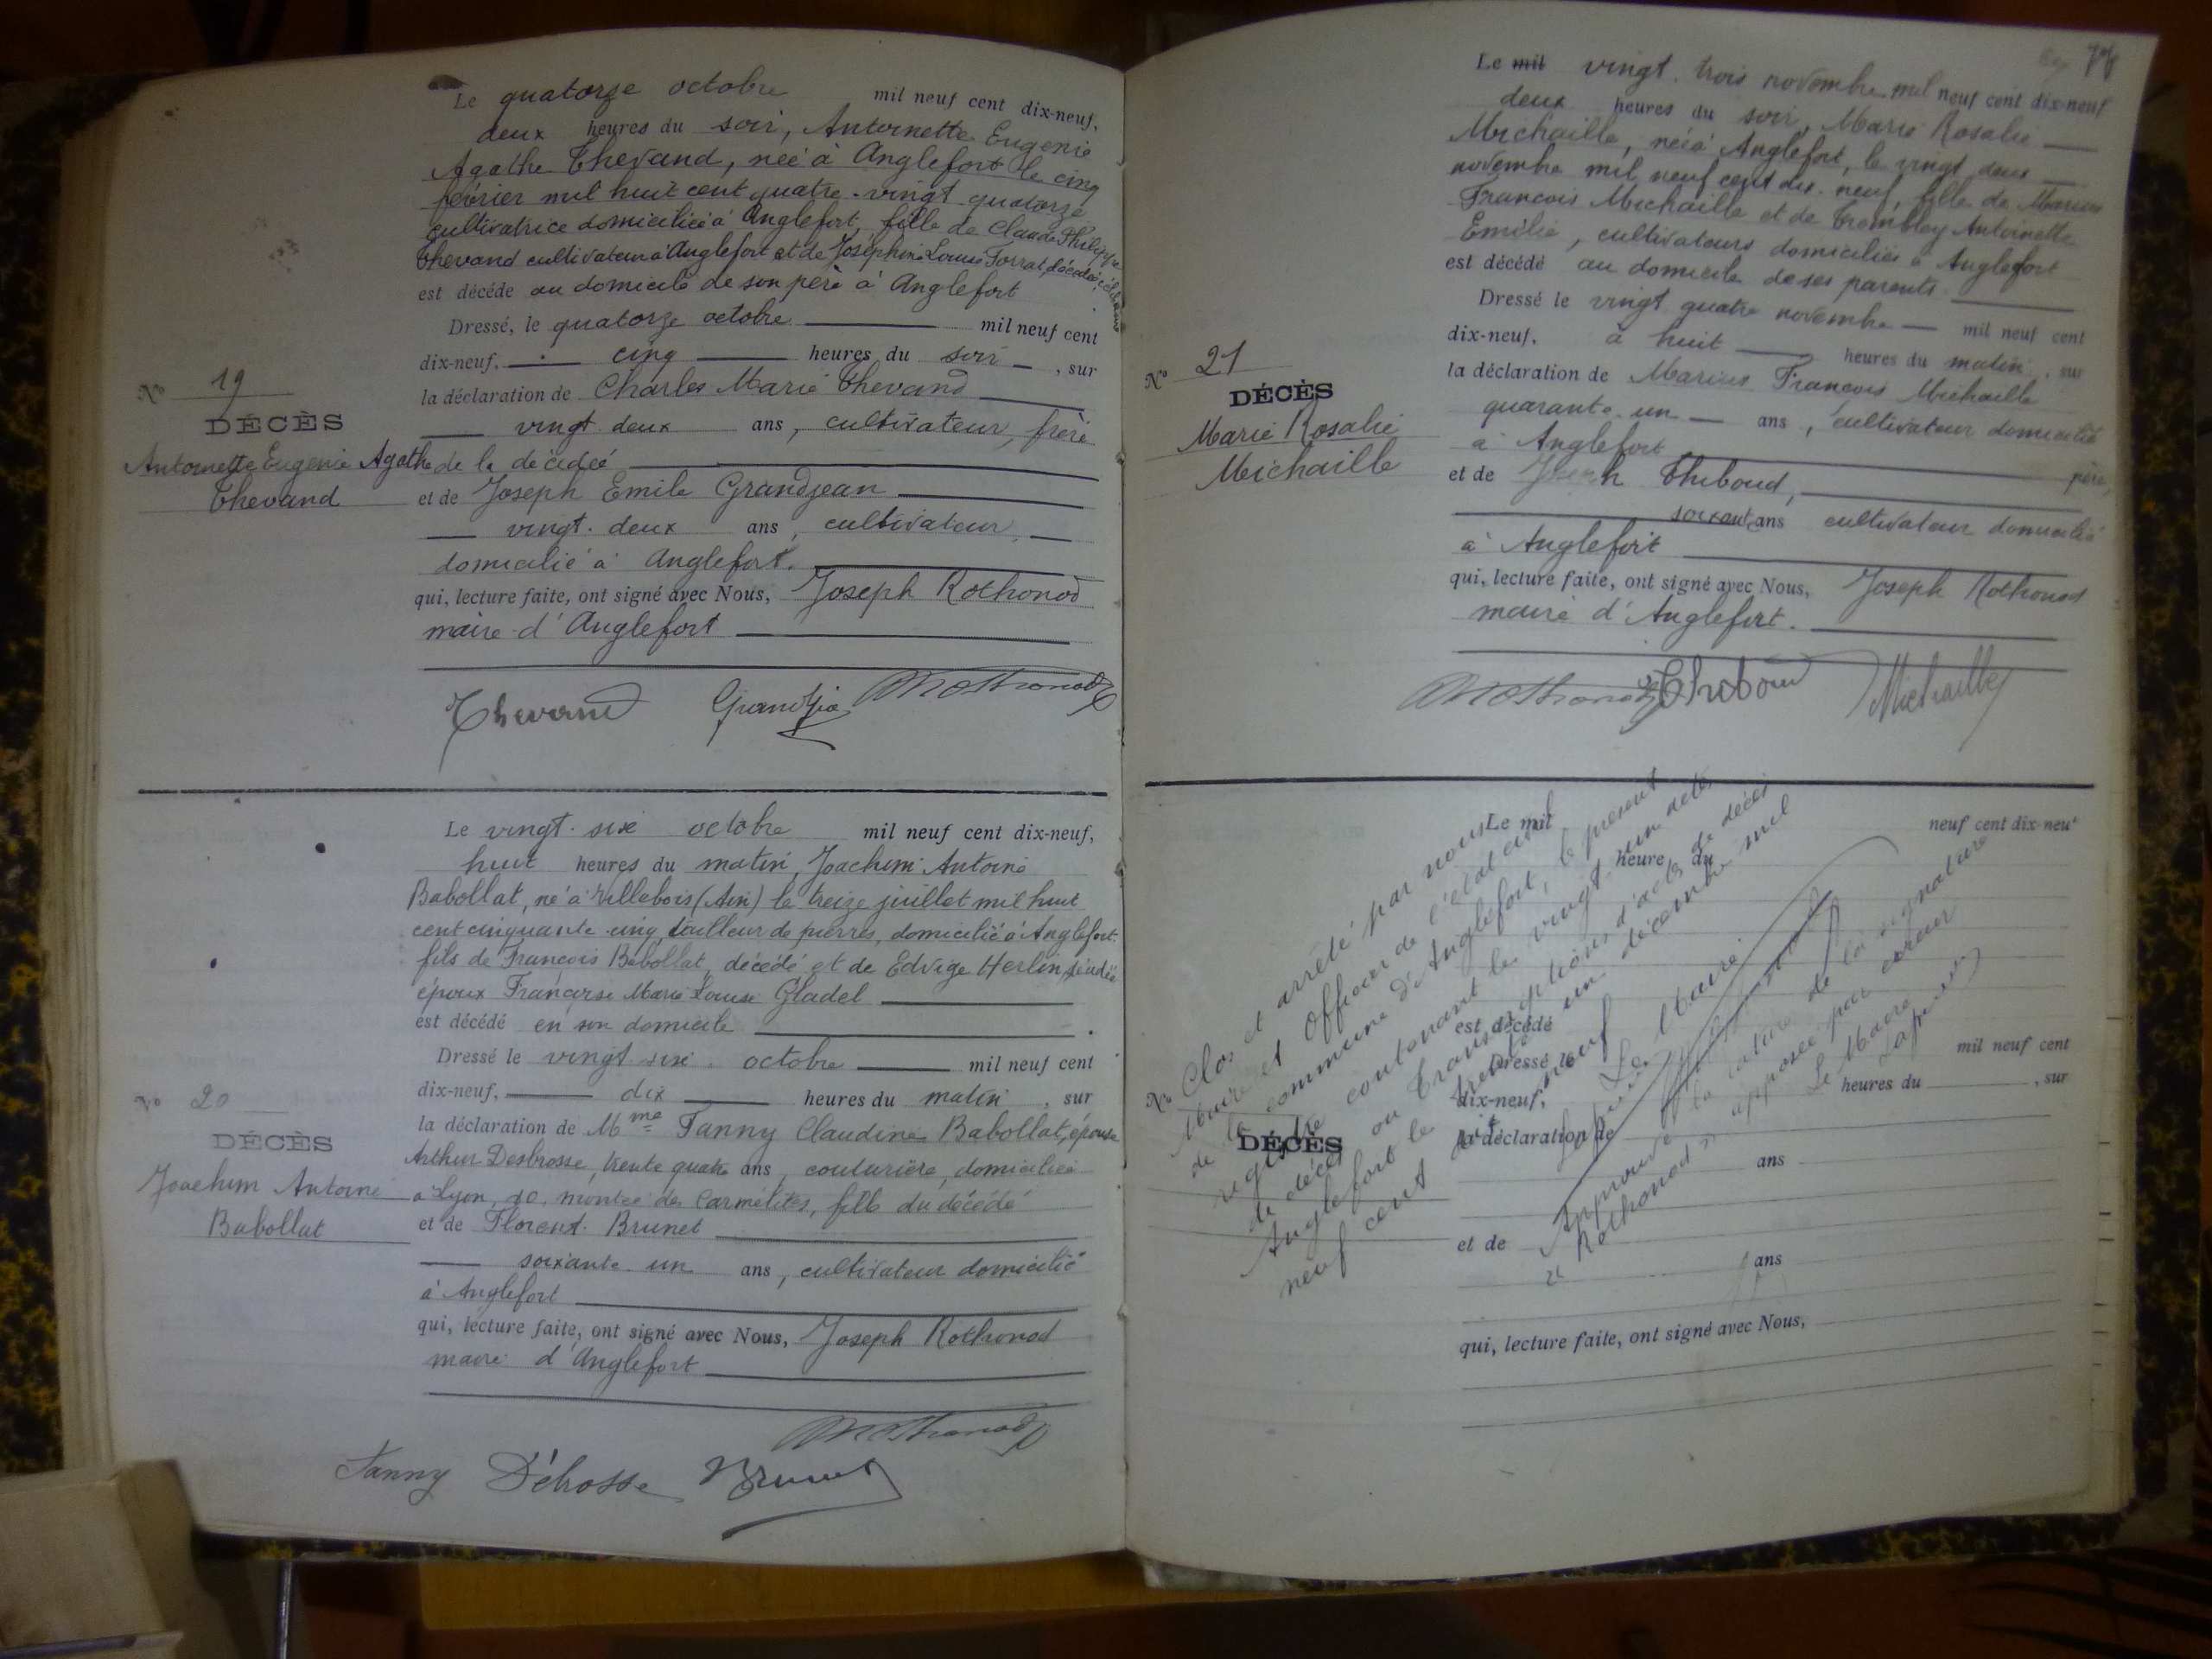 Le quatorze octobre mil neuf cent dix-neuf,
deux heures du soir, Antoinette Eugenie
Agathe Thevand, née à Anglefort le cinq
février mil huit cent quatre-vingt quatorze
cultivatrice domiciliée à Anglefort, fille de Claude Philippe
Thevand cultivateur à Anglefort et de Joséphine Louise Forrat, décédée, célibataire
est décédé au domicile de son père à Anglefort
Dressé, le quatorze octobre mil neuf cent
dix-neuf, cinq heures du soir, sur
la déclaration de Charles Marie Thevand
vingt deux ans, cultivateur, frère
de la décédée
et de Joseph Emile Grandjean
vingt-deux ans, cultivateur,
domicilié à Anglefort.
qui, lecture faite, ont signé avec Nous, Joseph Rothonod
maire d'Anglefort
No 19
DÉCÈS
Antoinette Eugenie Agathe
Thevand
Thevand Grandjea Rothonod
Le vingt-six octobre mil neuf cent dix-neuf,
huit heures du matin, Joachim Antoine
Babollat, né à Villebois (Ain) le treize juillet mil huit
cent cinquante-cinq, tailleur de pierres, domicilié à Anglefort
fils de François Babollat, décédé et de Edvige Herlin, décédée
époux Françoise Marie Louise Gladel
est décédé en son domicile
Dressé le vingt-six octobre mil neuf cent
dix-neuf, dix heures du matin, sur
la déclaration de Mme Fanny Claudine Babollat, épouse
Arthur Desbrosse, trente quatre ans, couturière, domiciliée
à Lyon, 10 montée des Carmélites, fille du décédé
et de Florent Brunet
soixante un ans, cultivateur domicilié
à Anglefort
qui, lecture faite, ont signé avec Nous, Joseph Rothonod
maire d'Anglefort
No 20
DÉCÈS
Joachim Antoine
Babollat
Rothonod
Fanny Débosse Brunet
Le mil vingt-trois novembre mil neuf cent dix-neuf
deux heures du soir, Marie Rosalie
Michaille, née à Anglefort, le vingt deux
novembre mil neuf cent dix-neuf, fille de Marius
François Michaille et de Trombley Antoinette
Emélie, cultivateurs domiciliés à Anglefort
est décédé au domicile de ses parents
Dressé le vingt quatre novembre mil neuf cent
dix-neuf, à huit heures du matin, sur
la déclaration de Marius François Michaille
quarante-un ans, cultivateur domicilié
à Anglefort père,
et de Joseph Thiboud,
soixante ans cultivateur domicilié
à Anglefort
qui, lecture faite, ont signé avec Nous, Joseph Rothonod
maire d'Anglefort.
No 21
DÉCÈS
Marie Rosalie
Michaille
Rothonod Thiboud Michaille
Le mil neuf cent dix-neuf
heure du
est décédé
Dressé le mil neuf cent
dix-neuf, heures du , sur
la déclaration de
ans
et de
ans
qui, lecture faite, ont signé avec Nous,
No
DÉCÈS
Clos et arrêté par nous
Maire et Officier de l'état civil
de la commune d'Anglefort, le présent
registre contenant les vingt-un actes
de décès ou transcriptions d'acte de décès
Anglefort le trente un décembre mil
neuf cent dix neuf
Le Maire
Approuvé la rature de la signature
"Rothonod" apposée par erreur
Le Maire